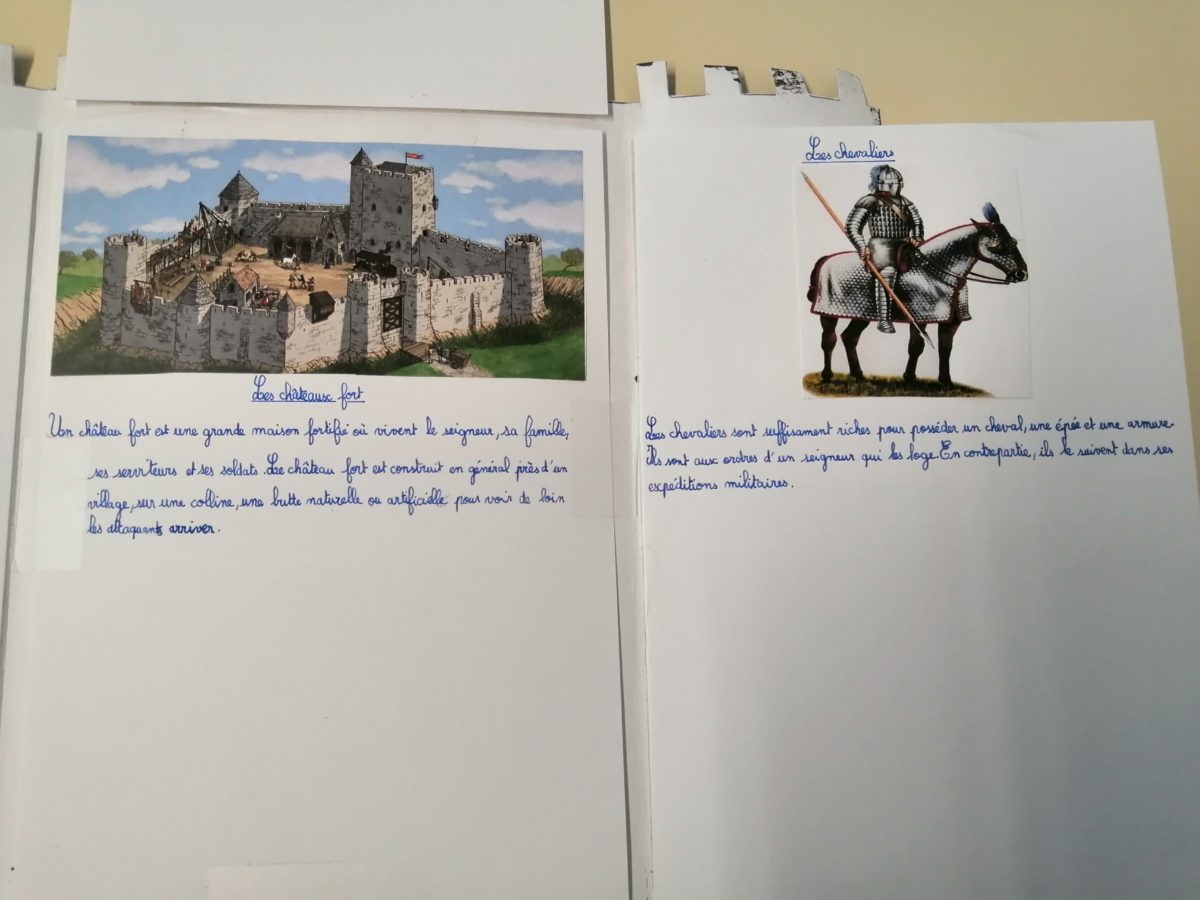 Les châteaux fort
Un château fort est une grande maison fortifié où vivent le seigneur, sa famille,
ses serviteurs et ses soldats. Le château fort est construit en général près d'un
village, sur une colline, une butte naturelle ou artificielle pour voir de loin
les attaquants arriver.
Les chevaliers
Les chevaliers sont suffisament riches pour posséder un cheval, une épée et une armure.
Ils sont aux ordres d'un seigneur qui les loge. En contrepartie, ils le suivent dans ses
expéditions militaires.